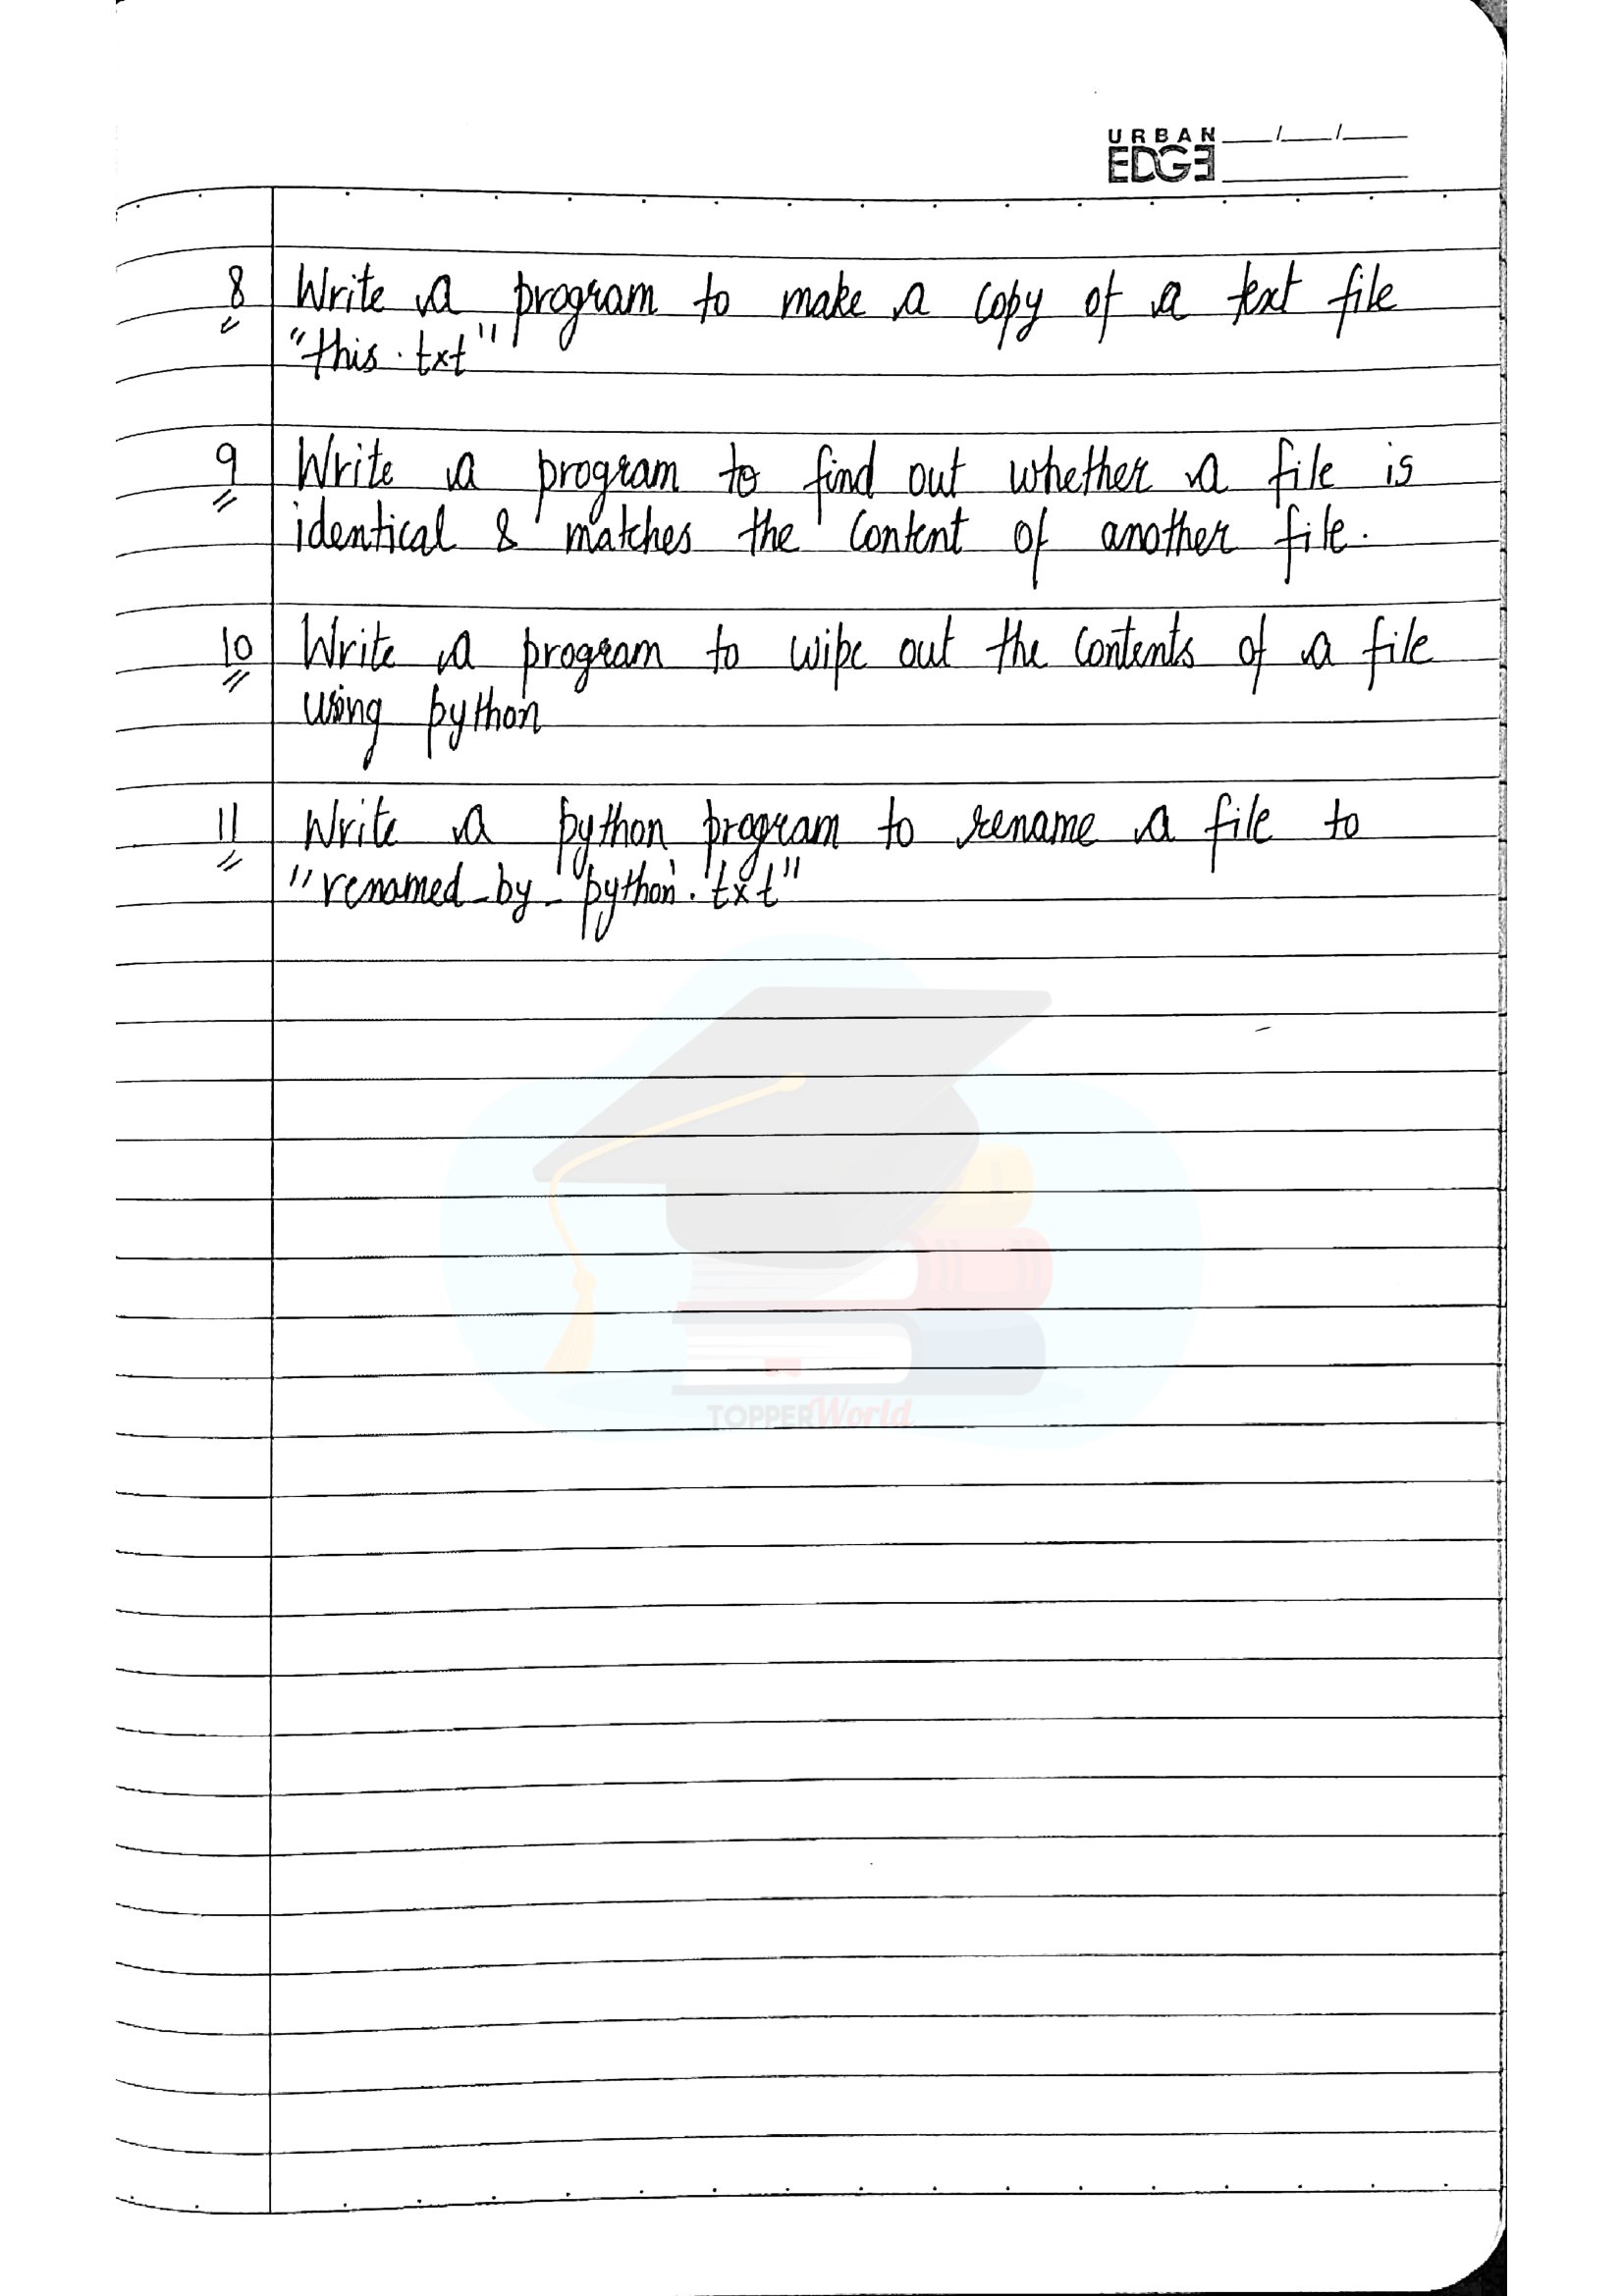 URBAN
EDGE
8 Write a program to make a copy of a text file
"this.txt"
9 Write a program to find out whether a file is
identical & matches the content of another file.
10 Write a program to wipe out the contents of a file
using python
11 Write a python program to rename a file to
"renamed_by_python.txt"
TOPPERWorld